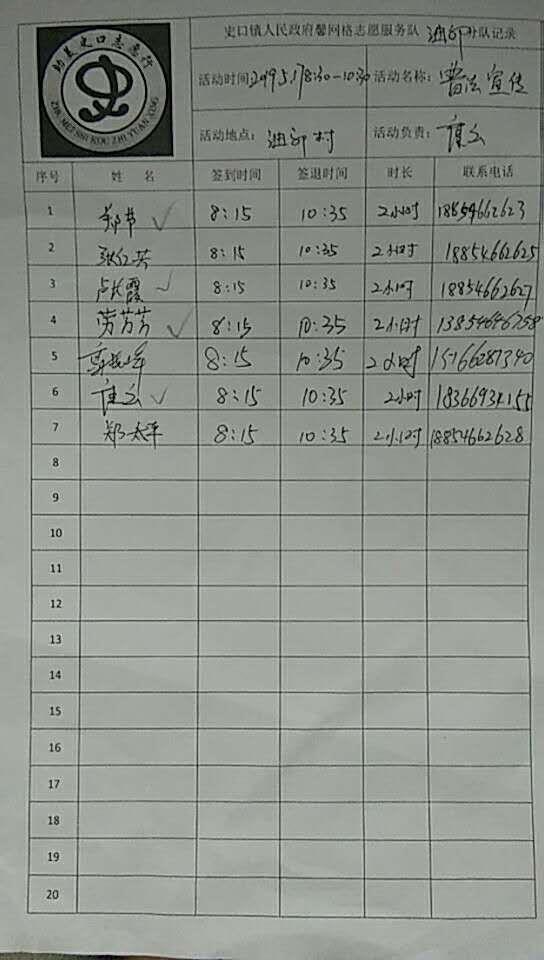 助美史口志愿行
ZHU MEI SHI KOU ZHI YUAN XING
史口镇人民政府馨网格志愿服务队 分队记录
活动时间: 2019.5.17 8:30-10:30 活动名称: 普法宣传
活动地点: 村 活动负责:
序号 姓 名 签到时间 签退时间 时长 联系电话
1 8:15 10:35 2小时 18854662623
2 8:15 10:35 2小时 18854662625
3 8:15 10:35 2小时 18854662627
4 芳芳 8:15 10:35 2小时
5 8:15 10:35 2小时 15166287340
6 8:15 10:35 2小时 18366934155
7 郑太平 8:15 10:35 2小时 18854662628
8
9
10
11
12
13
14
15
16
17
18
19
20